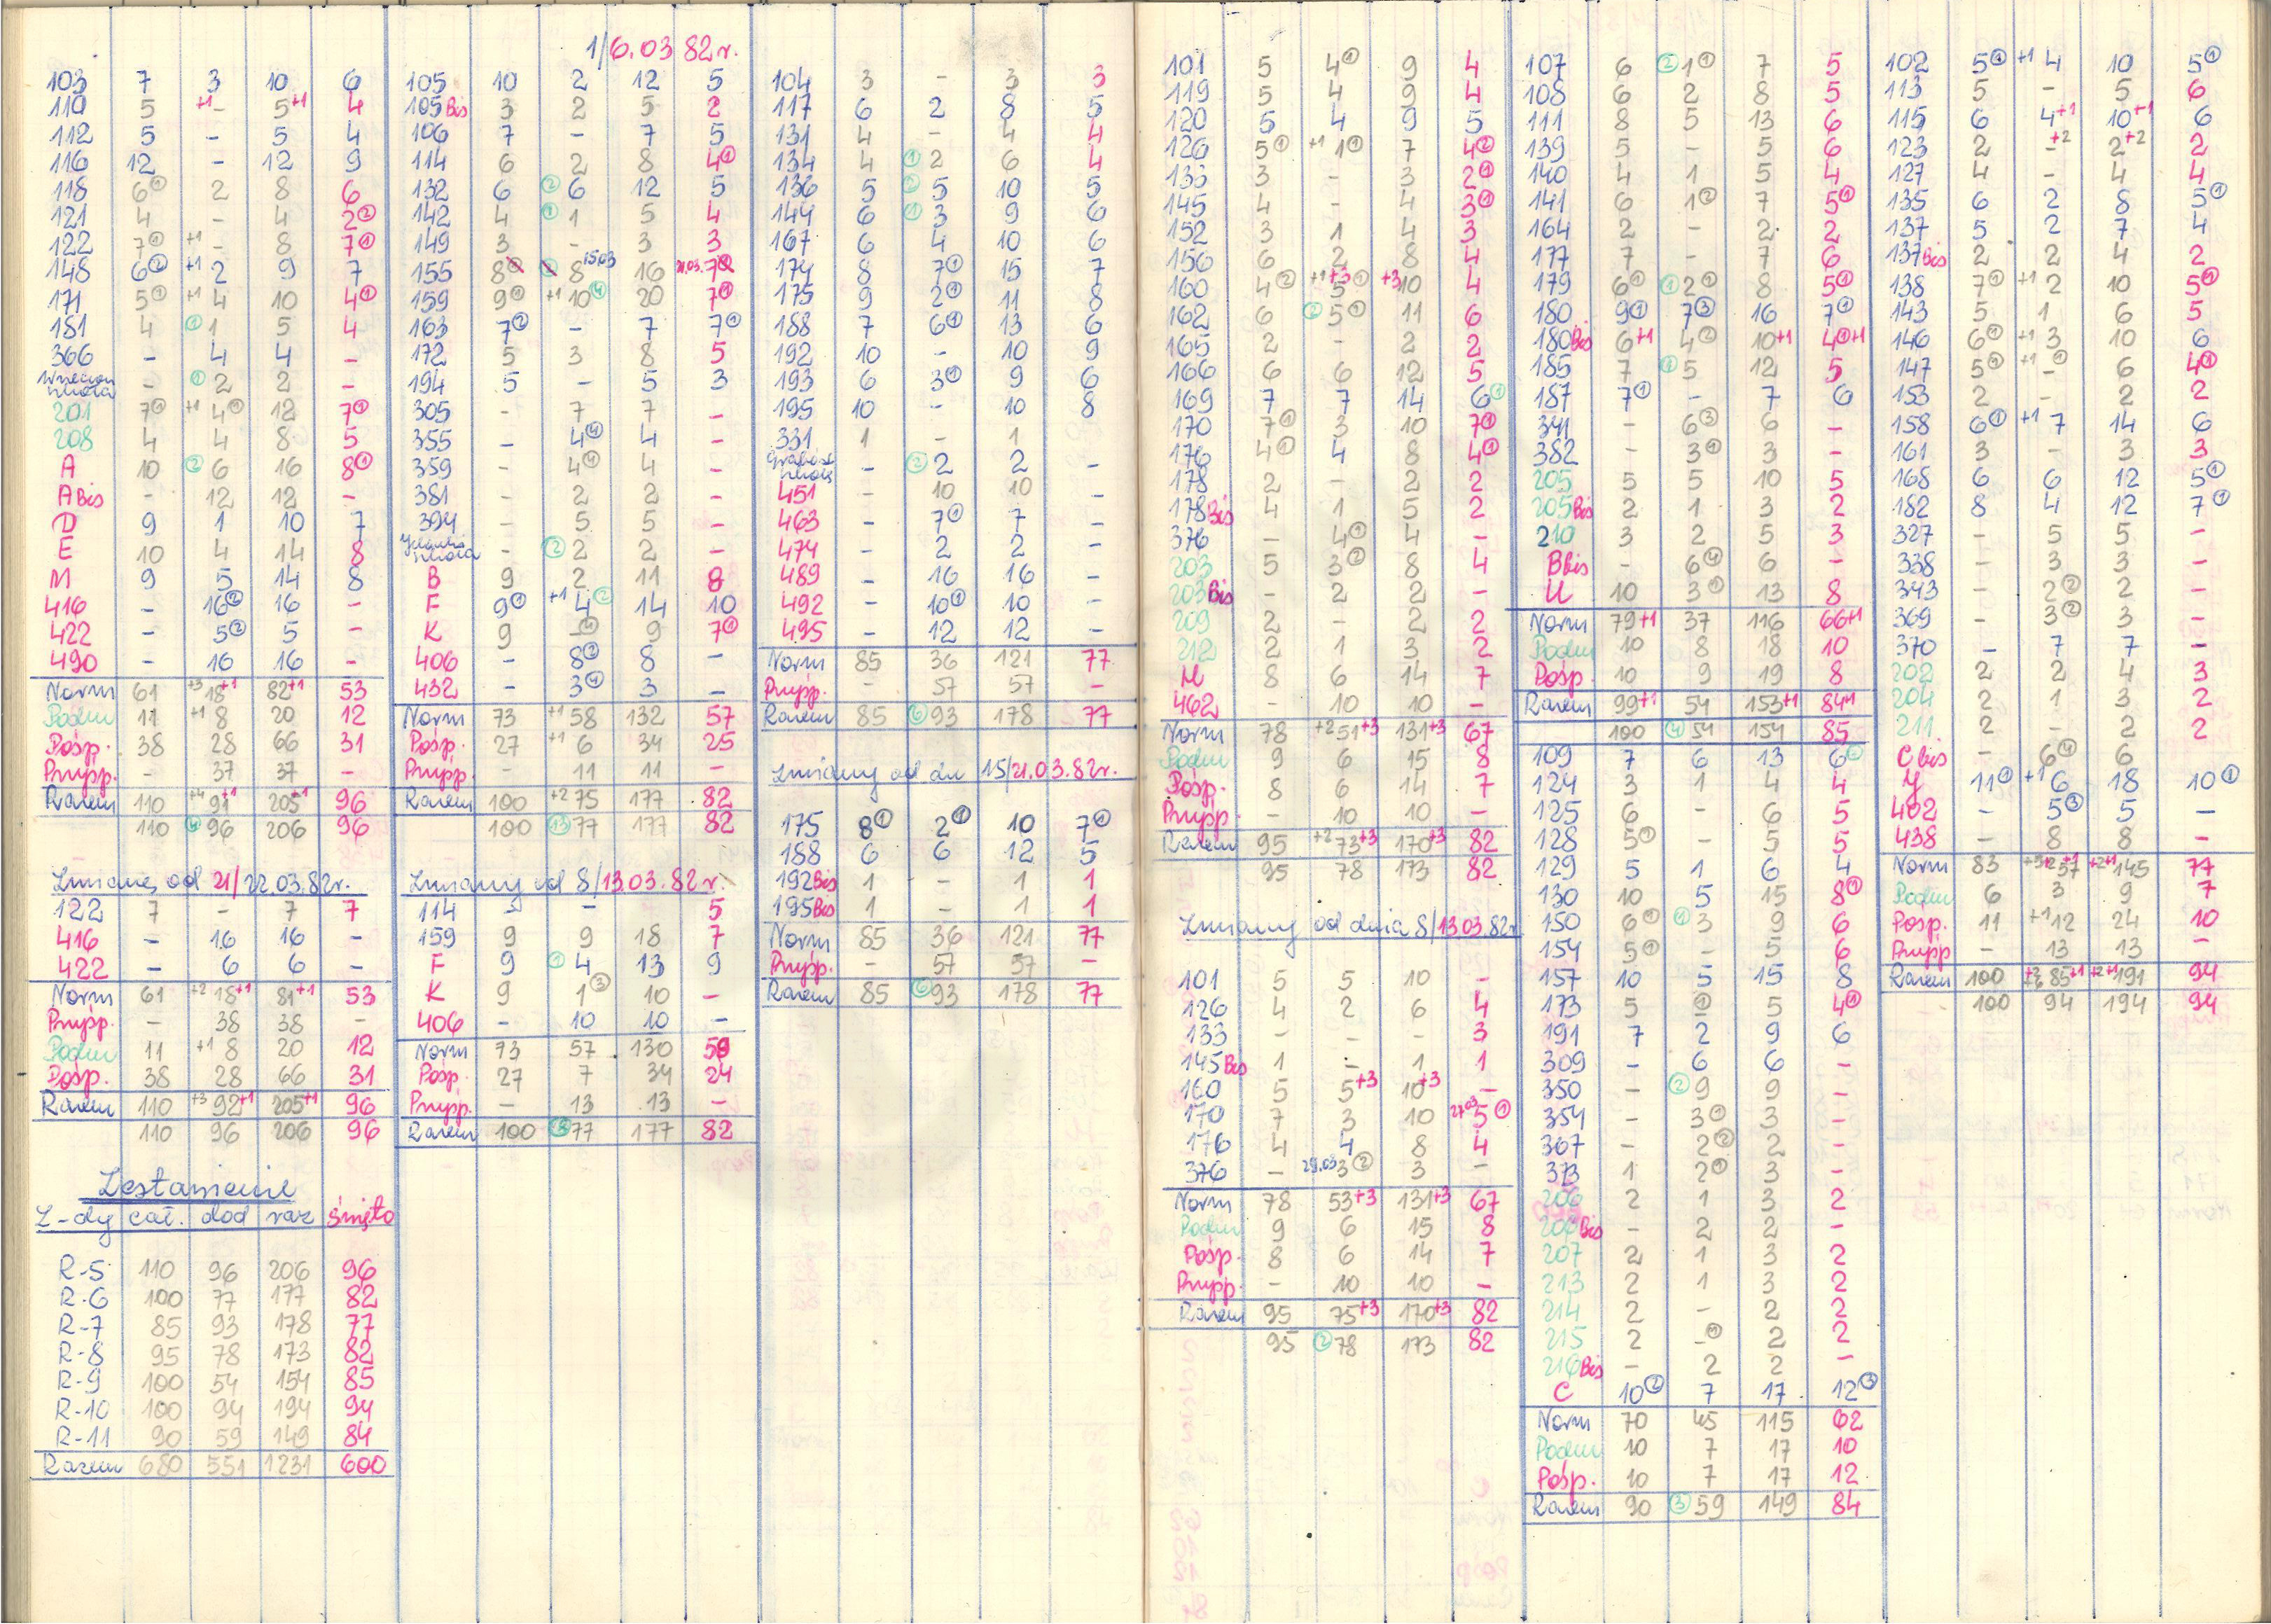 1/6.03 82r.
103 7 3 10 6
110 5 +1 - 5+1 4
112 5 - 5 4
116 12 - 12 9
118 6① 2 8 6
121 4 - 4 2②
122 7① +1 - 8 7①
148 6② +1 2 9 7
171 5① +1 4 10 4①
181 4 ① 1 5 4
366 - 4 4 -
- ① 2 2 -
201 7① +1 4① 12 7①
208 4 4 8 5
A 10 ② 6 16 8①
A Bis - 12 12 -
D 9 1 10 7
E 10 4 14 8
M 9 5 14 8
416 - 16② 16 -
422 - 5② 5 -
490 - 16 16 -
Norm 61 +3 18+1 82+1 53
Podm 11 +1 8 20 12
Pośp. 38 28 66 31
Przysp. - 37 37 -
Razem 110 +4 91+1 205+1 96
110 ④ 96 206 96
Zmiany od 21/22.03.82r.
122 7 - 7 7
416 - 16 16 -
422 - 6 6 -
Norm 61 +2 18+1 81+1 53
Przysp. - 38 38 -
Podm 11 +1 8 20 12
Pośp. 38 28 66 31
Razem 110 +3 92+1 205+1 96
110 96 206 96
Zestawienie
Z-dy cał. dod raz święto
R-5 110 96 206 96
R-6 100 77 177 82
R-7 85 93 178 77
R-8 95 78 173 82
R-9 100 54 154 85
R-10 100 94 194 94
R-11 90 59 149 84
Razem 680 551 1231 600
105 10 2 12 5
105 Bis 3 2 5 2
106 7 - 7 5
114 6 2 8 4①
132 6 ② 6 12 5
142 4 ① 1 5 4
149 3 - 3 3
155 8 8 15.03 16 21.03. 7
159 9① +1 10④ 20 7①
163 7① - 7 7①
172 5 3 8 5
194 5 - 5 3
305 - 7 7 -
355 - 4④ 4 -
359 - 4④ 4 -
381 - 2 2 -
394 - 5 5 -
- ② 2 2 -
B 9 2 11 8
F 9① +1 4② 14 10
K 9 -④ 9 7①
406 - 8② 8 -
432 - 3④ 3 -
Norm 73 +1 58 132 57
Pośp. 27 +1 6 34 25
Przysp. - 11 11 -
Razem 100 +2 75 177 82
100 ⑬ 77 177 82
Zmiany od 8/13.03.82 r.
114 - - 5
159 9 9 18 7
F 9 ① 4 13 9
K 9 1③ 10 -
406 - 10 10 -
Norm 73 57 130 58
Pośp. 27 7 34 24
Przysp. - 13 13 -
Razem 100 77 177 82
104 3 - 3 3
117 6 2 8 5
131 4 - 4 4
134 4 ① 2 6 4
136 5 ② 5 10 5
144 6 ① 3 9 6
167 6 4 10 6
174 8 7① 15 7
175 9 2① 11 8
188 7 6① 13 6
192 10 - 10 9
193 6 3① 9 6
195 10 - 10 8
331 1 - 1
- ② 2 2 -
451 - 10 10 -
463 - 7① 7 -
474 - 2 2 -
489 - 16 16 -
492 - 10① 10 -
495 - 12 12 -
Norm 85 36 121 77
Przysp. - 57 57 -
Razem 85 ⑥ 93 178 77
Zmiany od dn 15/21.03.82r.
175 8① 2① 10 7①
188 6 6 12 5
192 Bis 1 - 1 1
195 Bis 1 - 1 1
Norm 85 36 121 77
Przysp. - 57 57 -
Razem 85 ⑥ 93 178 77
101 5 4① 9 4
119 5 4 9 4
120 5 4 9 5
126 5① +1 1① 7 4②
133 3 - 3 2①
145 4 - 4 3①
152 3 1 4 3
156 6 2 8 4
160 4② +1 +3 5① +3 10 4
162 6 ② 5① 11 6
165 2 - 2 2
166 6 6 12 5
169 7 7 14 6①
170 7① 3 10 7①
176 4① 4 8 4①
178 2 - 2 2
178 Bis 4 1 5 2
376 - 4① 4 -
203 5 3② 8 4
203 Bis - 2 2 -
209 2 - 2 2
212 2 1 3 2
M 8 6 14 7
462 - 10 10 -
Norm 78 +2 51+3 131+3 67
Podm 9 6 15 8
Pośp. 8 6 14 7
Przysp - 10 10 -
Razem 95 +2 73+3 170+3 82
95 78 173 82
Zmiany od dnia 8/13.03.82r
101 5 5 10 -
126 4 2 6 4
133 - - - 3
145 Bis 1 - 1 1
160 5 5+3 10+3 -
170 7 3 10 27.03 5①
176 4 4 8 4
376 - 29.03 3② 3 -
Norm 78 53+3 131+3 67
Podm 9 6 15 8
Pośp. 8 6 14 7
Przysp. - 10 10 -
Razem 95 75+3 170+3 82
95 ② 78 173 82
107 6 ② 1① 7 5
108 6 2 8 5
111 8 5 13 6
139 5 - 5 6
140 4 1 5 4
141 6 1② 7 5①
164 2 - 2 2
177 7 - 7 6
179 6① ① 2① 8 5①
180 9① 7③ 16 7①
180 Bis 6+1 4② 10+1 4①+1
185 7 ① 5 12 5
187 7① - 7 6
341 - 6③ 6 -
382 - 3① 3 -
205 5 5 10 5
205 Bis 2 1 3 2
210 3 2 5 3
B Bis - 6④ 6 -
U 10 3① 13 8
Norm 79+1 37 116 66+1
Podm 10 8 18 10
Pośp. 10 9 19 8
Razem 99+1 54 153+1 84+1
100 ④ 54 154 85
109 7 6 13 6①
124 3 1 4 4
125 6 - 6 5
128 5① - 5 5
129 5 1 6 4
130 10 5 15 8①
150 6① ① 3 9 6
154 5① - 5 6
157 10 5 15 8
173 5 ① 5 4①
191 7 2 9 6
309 - 6 6 -
350 - ② 9 9 -
354 - 3① 3 -
367 - 2② 2 -
373 1 2① 3 -
206 2 1 3 2
206 Bis - 2 2 -
207 2 1 3 2
213 2 1 3 2
214 2 - 2 2
215 2 -① 2 2
216 Bis - 2 2 -
C 10② 7 17 12③
Norm 70 45 115 62
Podm 10 7 17 10
Pośp. 10 7 17 12
Razem 90 ③ 59 149 84
102 5① +1 4 10 5①
113 5 - 5 6
115 6 4+1 10+1 6
123 2 -+2 2+2 2
127 4 - 4 4
135 6 2 8 5①
137 5 2 7 4
137 Bis 2 2 4 2
138 7① +1 2 10 5①
143 5 1 6 5
146 6① +1 3 10 6
147 5① +1 -① 6 4①
153 2 - 2 2
158 6① +1 7 14 6
161 3 - 3 3
168 6 6 12 5①
182 8 4 12 7①
327 - 5 5 -
338 - 3 3 -
343 - 2② 2 -
369 - 3② 3 -
370 - 7 7 -
202 2 2 4 3
204 2 1 3 2
211 2 - 2 2
C bis - 6④ 6
Y 11① +1 6 18 10①
402 - 5③ 5 -
438 - 8 8 -
Norm 83 57 145 77
Podm 6 3 9 7
Pośp. 11 +1 12 24 10
Przysp - 13 13 -
Razem 100 85+1 191 94
100 94 194 94